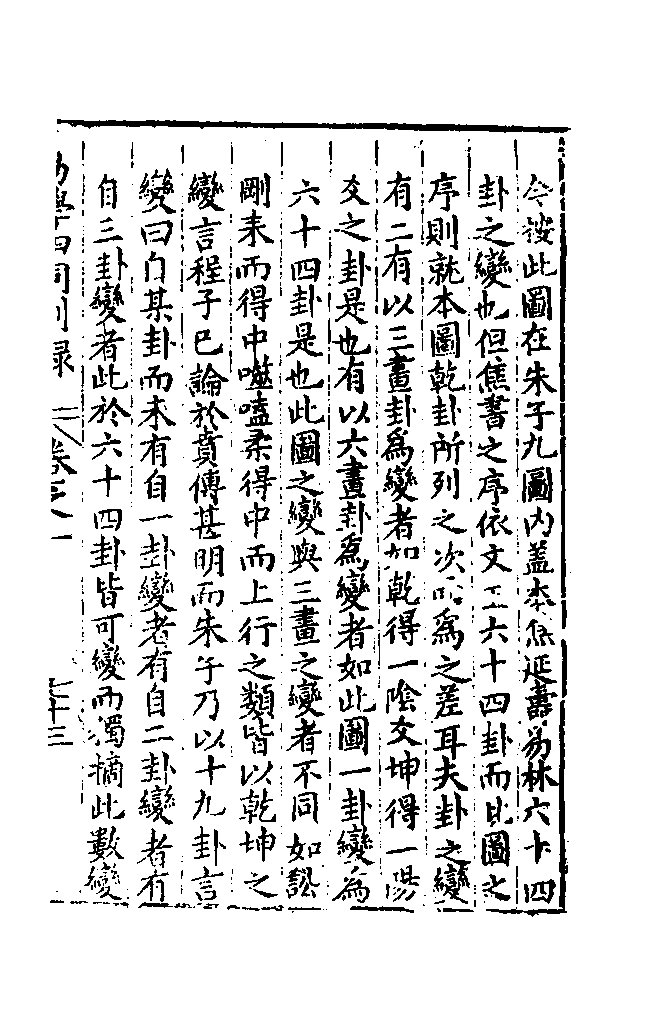 今按此圖在朱子九圖內蓋本焦延壽易林六十四
卦之變也但焦書之序依文王六十四卦而此圖之
序則就本圖乾卦所列之次以爲之差耳夫卦之變
有二有以三畫卦爲變者如乾得一陰交坤得一陽
交之卦是也有以六畫卦爲變者如此圖一卦變爲
六十四卦是也此圖之變與三畫之變者不同如訟
剛來而得中噬嗑柔得中而上行之類皆以乾坤之
變言程子巳論於賁傳甚明而朱子乃以十九卦言
變曰自某卦而來有自一卦變者有自二卦變者有
自三卦變者此於六十四卦皆可變而獨摘此數變
易學四同別錄 卷之一 七十三